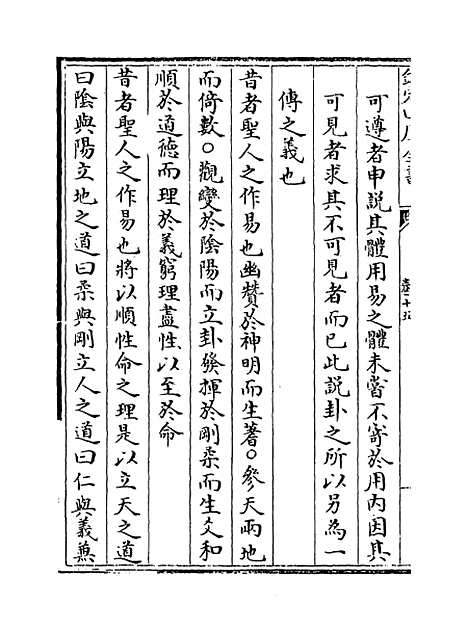 欽定四庫全書
卷十五
可遵者申說其體用易之體未嘗不寄於用内因其
可見者求其不可見者而已此説卦之所以另為一
傳之義也
昔者聖人之作易也幽贊於神明而生蓍○參天兩地
而倚數○觀變於陰陽而立卦發揮於剛柔而生爻和
順於道德而理於義窮理盡性以至於命
昔者聖人之作易也將以順性命之理是以立天之道
曰陰與陽立地之道曰柔與剛立人之道曰仁與義兼